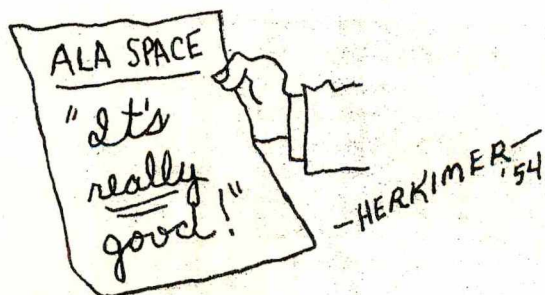 ALA SPACE
"It's
really
good!"
—HERKIMER—
'54